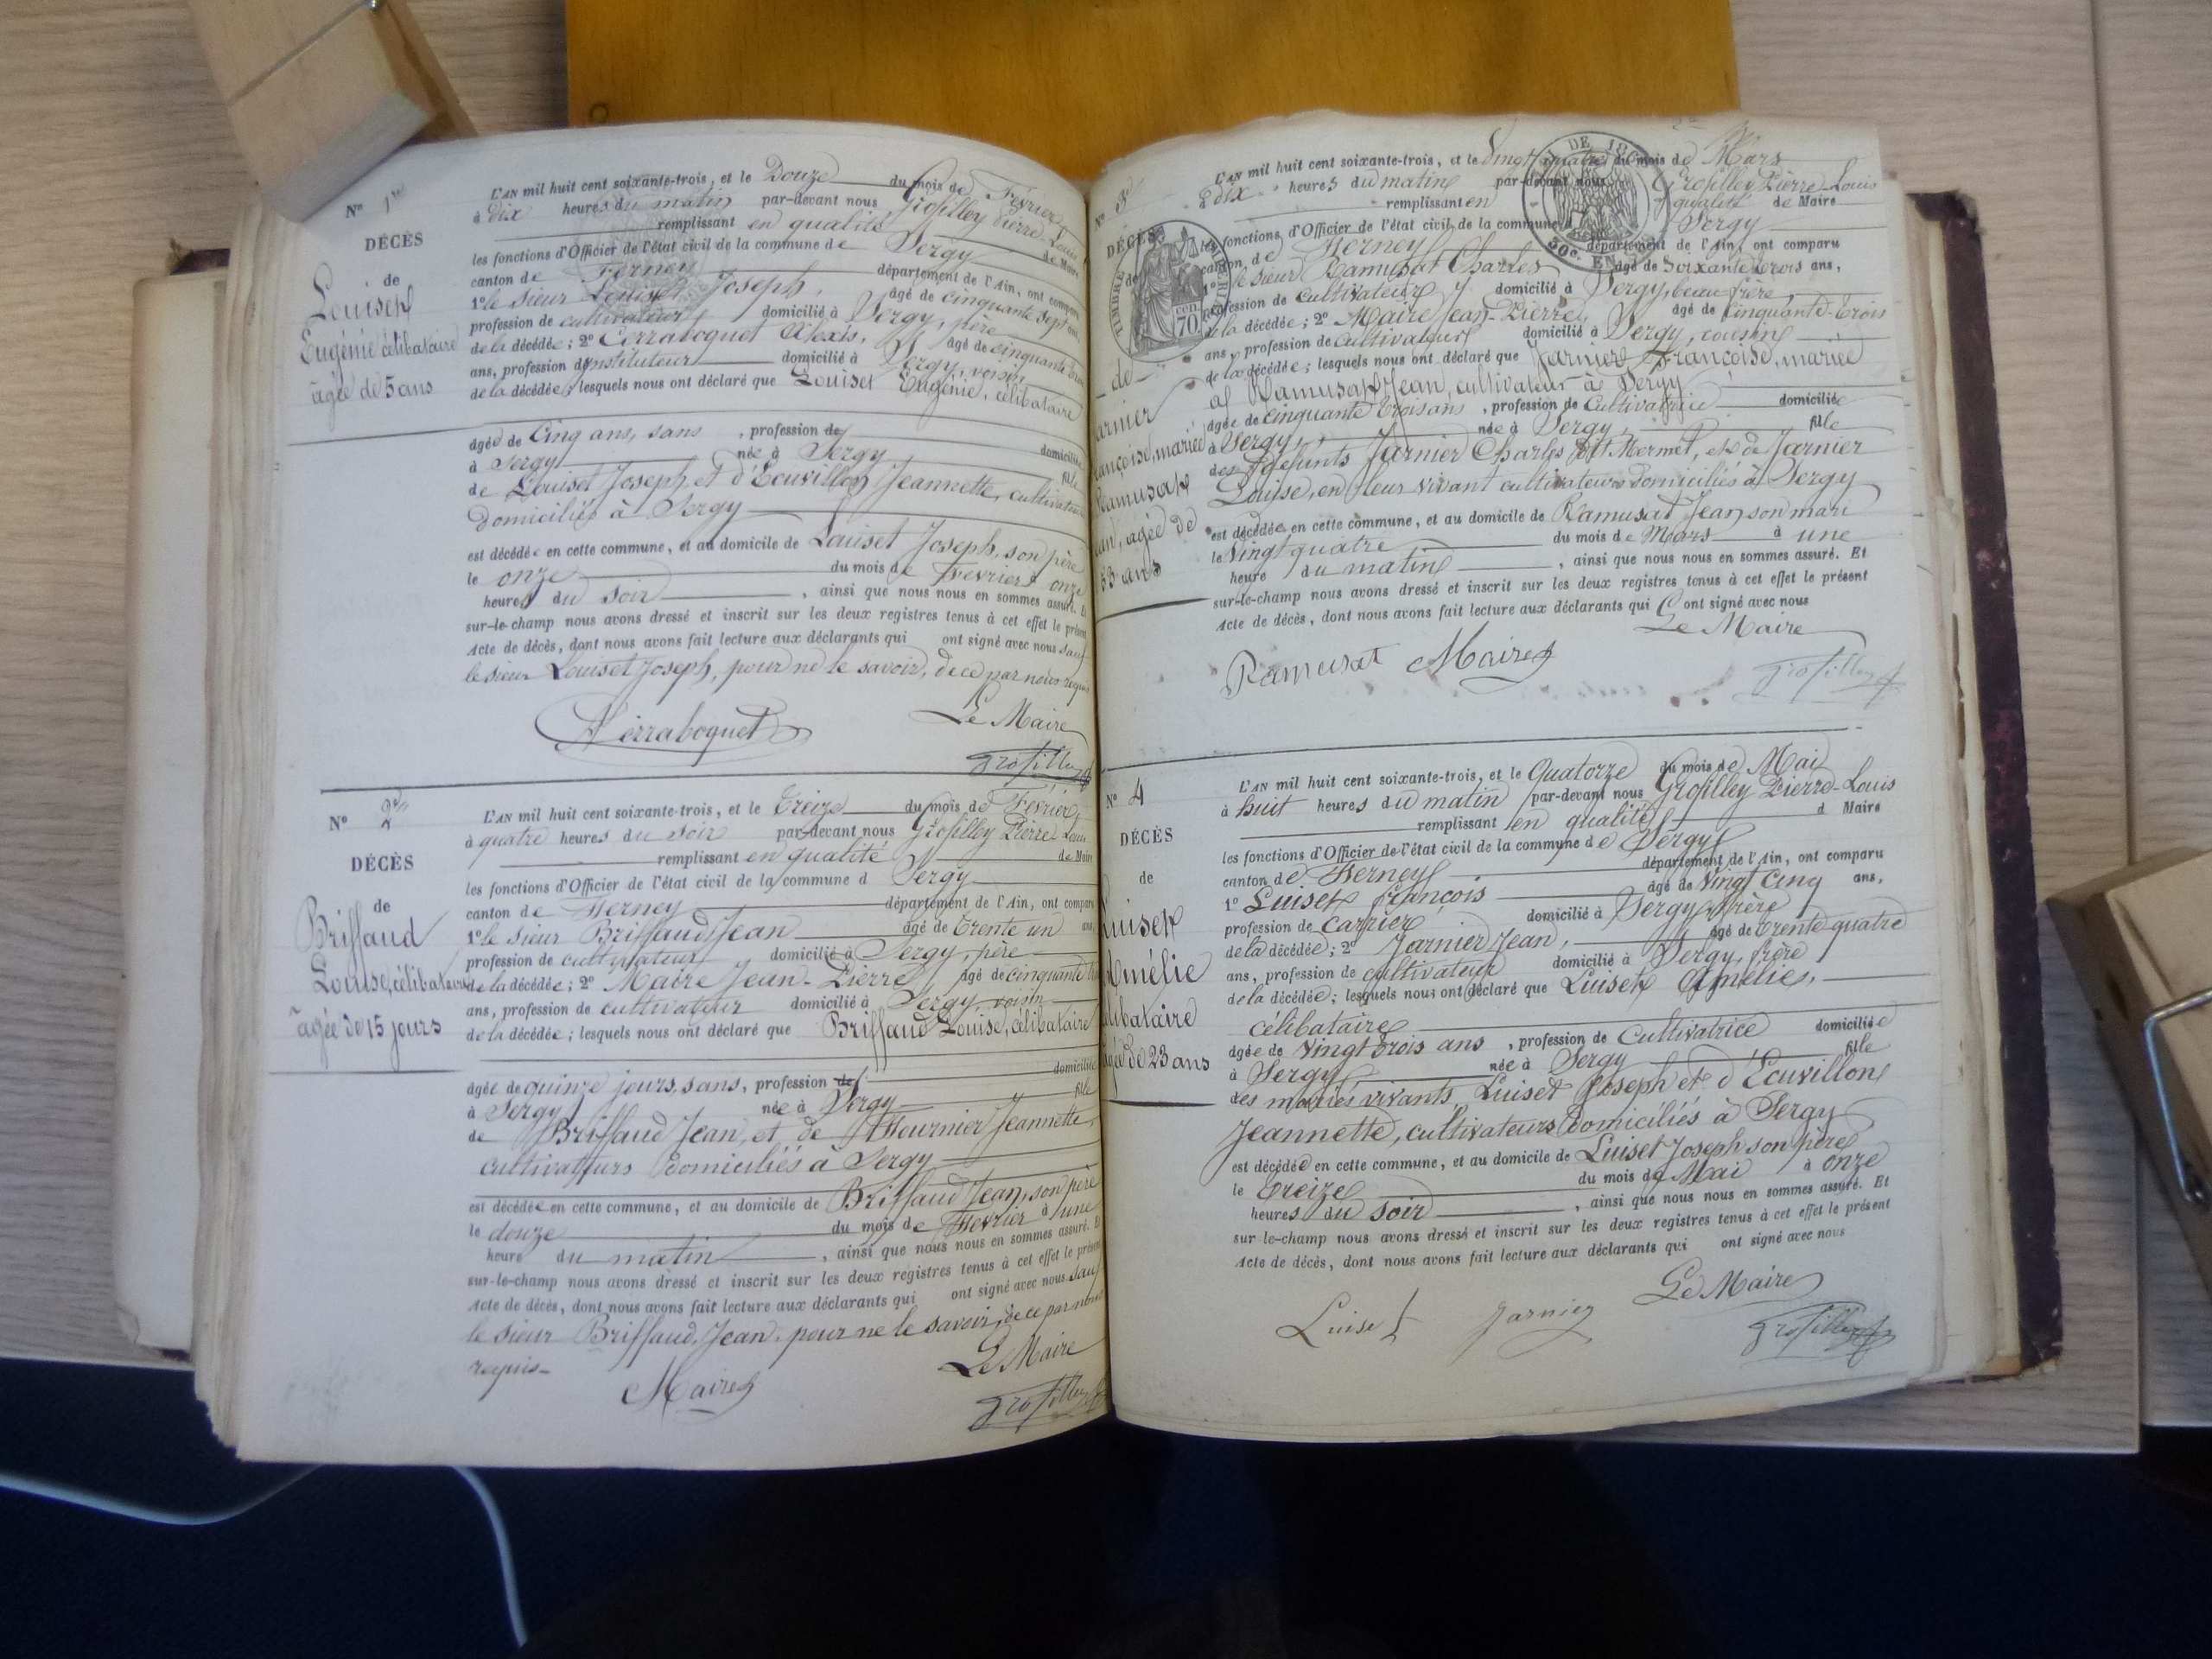 N° 1er
DÉCÈS
de
Louiset
Eugénie célibataire
âgée de 5 ans
L'AN mil huit cent soixante-trois, et le Douze du mois de Février
à dix heures du matin par-devant nous Grosfilley Pierre Louis
remplissant en qualité de Maire
les fonctions d'Officier de l'état civil de la commune de Sergy
canton de Ferney département de l'Ain, ont comparu
1° le sieur Louiset Joseph, âgé de cinquante sept ans,
profession de cultivateur domicilié à Sergy, père
de la décédée; 2° Perraboquet Alexis, âgé de cinquante
ans, profession d'instituteur domicilié à Sergy, voisin
de la décédée; lesquels nous ont déclaré que Louiset Eugénie, célibataire
âgée de Cinq ans, sans profession de domiciliée
à Sergy née à Sergy fille
de Louiset Joseph et d'Ecuvillon Jeannette, cultivateurs
domiciliés à Sergy
est décédée en cette commune, et au domicile de Louiset Joseph, son père
le onze du mois de Fevrier à onze
heures du soir, ainsi que nous nous en sommes assuré. Et
sur-le-champ nous avons dressé et inscrit sur les deux registres tenus à cet effet le présent
Acte de décès, dont nous avons fait lecture aux déclarants qui ont signé avec nous sauf
le sieur Louiset Joseph, pour ne le savoir, de ce par nous requis
Perraboquet Le Maire
Grosfilley
N° 2
DÉCÈS
de
Briffaud
Louise, célibataire
âgée de 15 jours
L'AN mil huit cent soixante-trois, et le Treize du mois de Février
à quatre heures du soir par-devant nous Grosfilley Pierre Louis
remplissant en qualité de Maire
les fonctions d'Officier de l'état civil de la commune d Sergy
canton de Ferney département de l'Ain, ont comparu
1° le sieur Briffaud Jean âgé de trente un ans,
profession de cultivateur domicilié à Sergy, père
de la décédée; 2° Maire Jean-Pierre âgé de cinquante
ans, profession de cultivateur domicilié à Sergy voisin
de la décédée; lesquels nous ont déclaré que Briffaud Louise, célibataire
âgée de quinze jours, sans, profession de domiciliée
à Sergy née à Sergy fille
de Briffaud Jean, et de Fournier Jeannette
cultivateurs domiciliés à Sergy
est décédée en cette commune, et au domicile de Briffaud Jean, son père
le douze du mois de Fevrier à une
heure du matin, ainsi que nous nous en sommes assuré. Et
sur-le-champ nous avons dressé et inscrit sur les deux registres tenus à cet effet le présent
Acte de décès, dont nous avons fait lecture aux déclarants qui ont signé avec nous sauf
le sieur Briffaud Jean, pour ne le savoir, de ce par nous
requis
Maire Le Maire
Grosfilley
N° 3
DÉCÈS
de
Jarnier
Françoise, mariée
Ramusat
Jean, âgée de
53 ans
TIMBRE IMPÉRIAL
70 cen
50c. EN SUS
L'AN mil huit cent soixante-trois, et le Vingt quatre du mois de Mars
à dix heures du matin par-devant nous Grosfilley Pierre-Louis
remplissant en qualité de Maire
les fonctions d'Officier de l'état civil de la commune Sergy
canton de Ferney département de l'Ain, ont comparu
1° le sieur Ramusat Charles âgé de soixante trois ans,
profession de cultivateur domicilié à Sergy, beau frère
de la décédée; 2° Maire Jean-Pierre, âgé de cinquante-trois
ans, profession de cultivateur domicilié à Sergy, cousin
de la décédée; lesquels nous ont déclaré que Jarnier Françoise, mariée
à Ramusat Jean, cultivateur à Sergy
âgée de cinquante trois ans, profession de Cultivatrice domiciliée
à Sergy, née à Sergy, fille
des défunts Jarnier Charles dit Mermet, et de Jarnier
Louise, en leur vivant cultivateurs domiciliés à Sergy
est décédée en cette commune, et au domicile de Ramusat Jean son mari
le Vingt quatre du mois de Mars à une
heure du matin, ainsi que nous nous en sommes assuré. Et
sur-le-champ nous avons dressé et inscrit sur les deux registres tenus à cet effet le présent
Acte de décès, dont nous avons fait lecture aux déclarants qui ont signé avec nous
Le Maire
Ramusat Maire Grosfilley
N° 4
DÉCÈS
de
Luiset
Amélie
célibataire
âgée de 23 ans
L'AN mil huit cent soixante-trois, et le Quatorze du mois de Mai
à huit heures du matin par-devant nous Grosfilley Pierre-Louis
remplissant en qualité d Maire
les fonctions d'Officier de l'état civil de la commune de Sergy
canton de Ferney département de l'Ain, ont comparu
1° Luiset François âgé de Vingt Cinq ans,
profession de carrier domicilié à Sergy frère
de la décédée; 2° Jarnier Jean, âgé de trente quatre
ans, profession de cultivateur domicilié à Sergy, frère
de la décédée; lesquels nous ont déclaré que Luiset Amélie,
célibataire
âgée de Vingt trois ans, profession de Cultivatrice domiciliée
à Sergy née à Sergy fille
des mariés vivants, Luiset Joseph et d'Ecuvillon
Jeannette, cultivateurs domiciliés à Sergy
est décédée en cette commune, et au domicile de Luiset Joseph son père
le treize du mois de Mai à onze
heures du soir, ainsi que nous nous en sommes assuré. Et
sur le-champ nous avons dressé et inscrit sur les deux registres tenus à cet effet le présent
Acte de décès, dont nous avons fait lecture aux déclarants qui ont signé avec nous
Le Maire
Luiset Jarnier Grosfilley